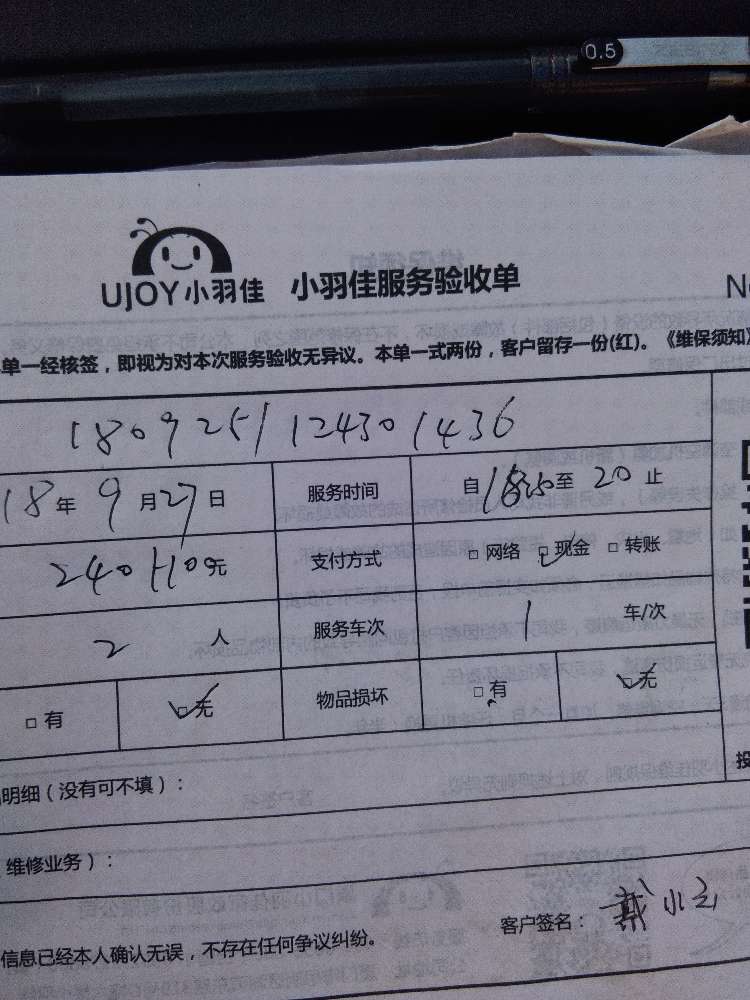 0.5
UJOY小羽佳 小羽佳服务验收单
No
单一经核签，即视为对本次服务验收无异议。本单一式两份，客户留存一份(红)。《维保须知》
1809251124301436
18年9月27日 服务时间 自1850至20止
240+10元 支付方式 □网络 □现金 □转账
2人 服务车次 1 车/次
□有 □无 物品损坏 □有 □无
明细（没有可不填）：
维修业务）：
信息已经本人确认无误，不存在任何争议纠纷。
客户签名：戴小玉